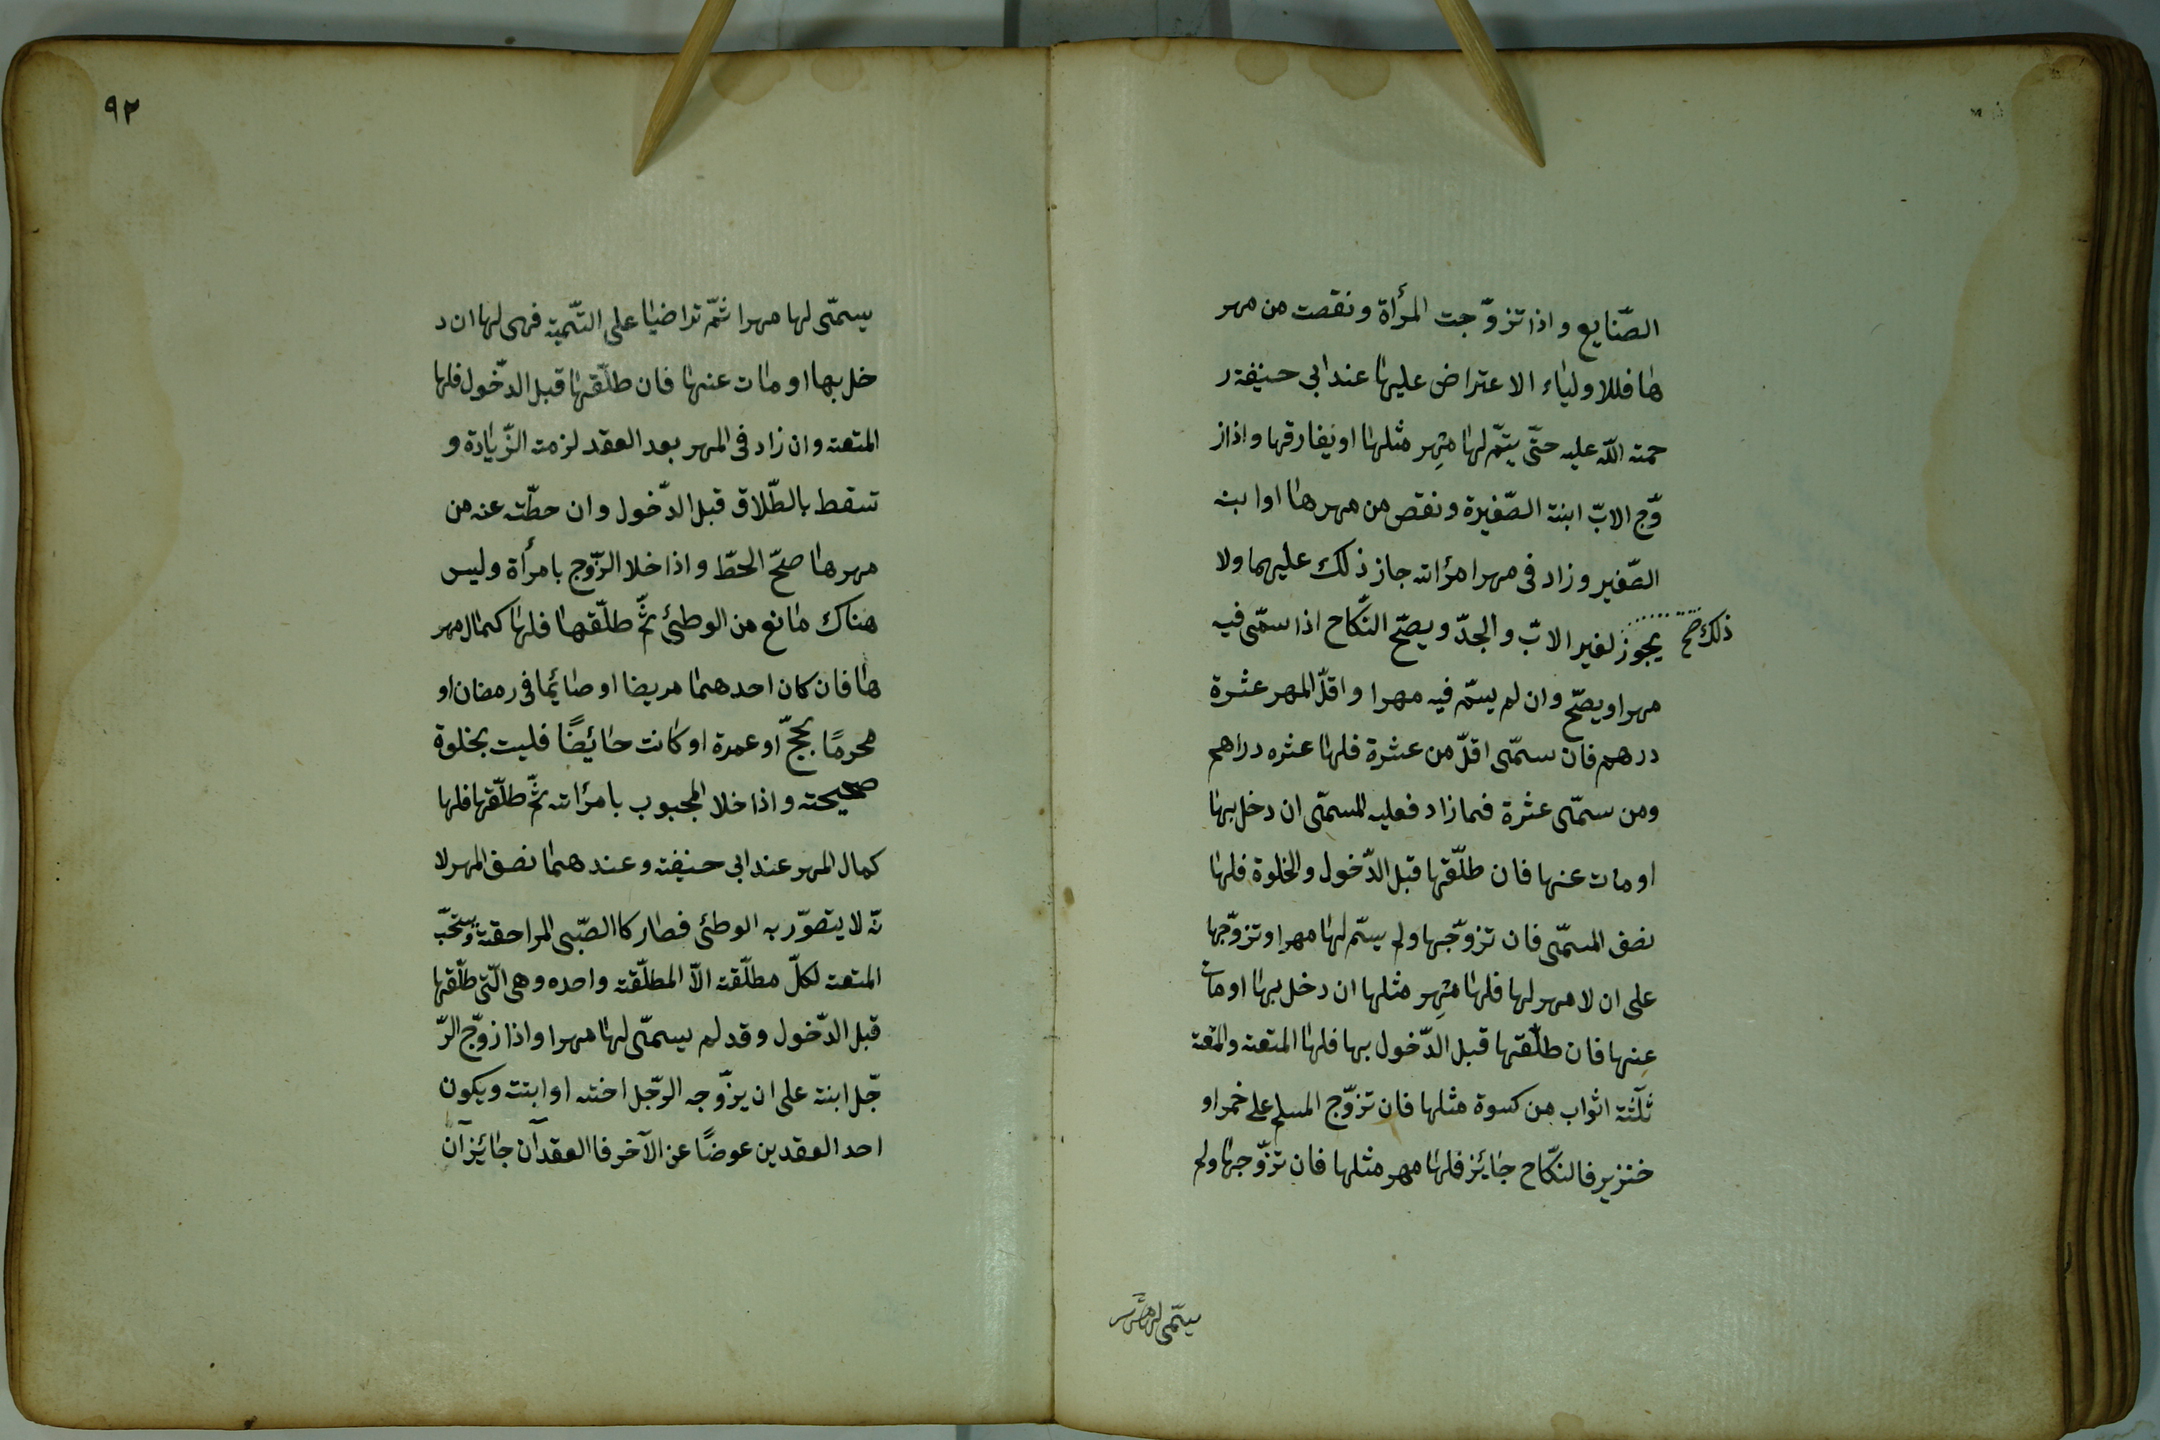 الصّنايع و اذا تزوّجت المرأة و نقصت من مهر
ها فللاولياء الاعتراض عليها عند ابى حنيفة ر
حمة اللّه عليه حتّى يتمّ لها مهر مثلها او يفارقها و اذا ز
وّج الابّ ابنة الصّغيرة و نقص من مهرها او ابنه
الصّغير و زاد فى مهر امرأته جاز ذلك عليهما ولا
يجوز لغير الابّ و الجدّ و يصحّ النّكاح اذا سمّى فيه
ذلك صح
مهرا و يصحّ و ان لم يسمّ فيه مهرا و اقلّ المهر عشرة
درهم فان سمّى اقلّ من عشرة فلها عشره دراهم
ومن سمّى عشرة فما زاد فعليه المسمّى ان دخل بها
او مات عنها فان طلّقها قبل الدّخول والخلوة فلها
نصف المسمّى فان تزوّجها ولم يسمّ لها مهرا و تزوّجها
على ان لا مهر لها فلها مهر مثلها ان دخل بها او مات
عنها فان طلّقها قبل الدّخول بها فلها المتعة والمتعة
ثلثة اثواب من كسوة مثلها فان تزوّج المسلم على خمر او
خنزير فالنكّاح جائز فلها مهر مثلها فان تزوّجها ولم
يسمّى لها مهر
٩٢
يسمّى لها مهرا ثمّ تراضيا على التّسمية فهى لها ان د
خل بها او مات عنها فان طلّقها قبل الدّخول فلها
المتعة و ان زاد فى المهر بعد العقد لزمته الزّيادة و
تسقط بالطّلاق قبل الدّخول و ان حطّته عنه من
مهرها صحّ الحطّ و اذا خلا الزّوج بامرأة وليس
هناك مانع من الوطئ ثمّ طلّقها فلها كمال مهر
ها فان كان احدهما مريضا او صائما فى رمضان او
محرمًا بحجّ او عمرة او كانت حائضًا فليت بخلوة
صحيحته و اذا خلا المجبوب بامرأته ثمّ طلّقها فلها
كمال المهر عند ابى حنيفة و عندهما نصف المهر لا
نّه لا يتصوّر به الوطئ فصار كاالصّبى المراحقة و يستحبّ
المتعة لكلّ مطلّقة الاّ المطلّقة واحده وهى الّتى طلّقها
قبل الدّخول وقد لم يسمّى لها مهرا و اذا زوّج الرّ
جّل ابنة على ان يزّوجه الرّجل اخته او ابنت و يكون
احد العقدين عوضًا عن الآخر فا العقدآن جائزآن